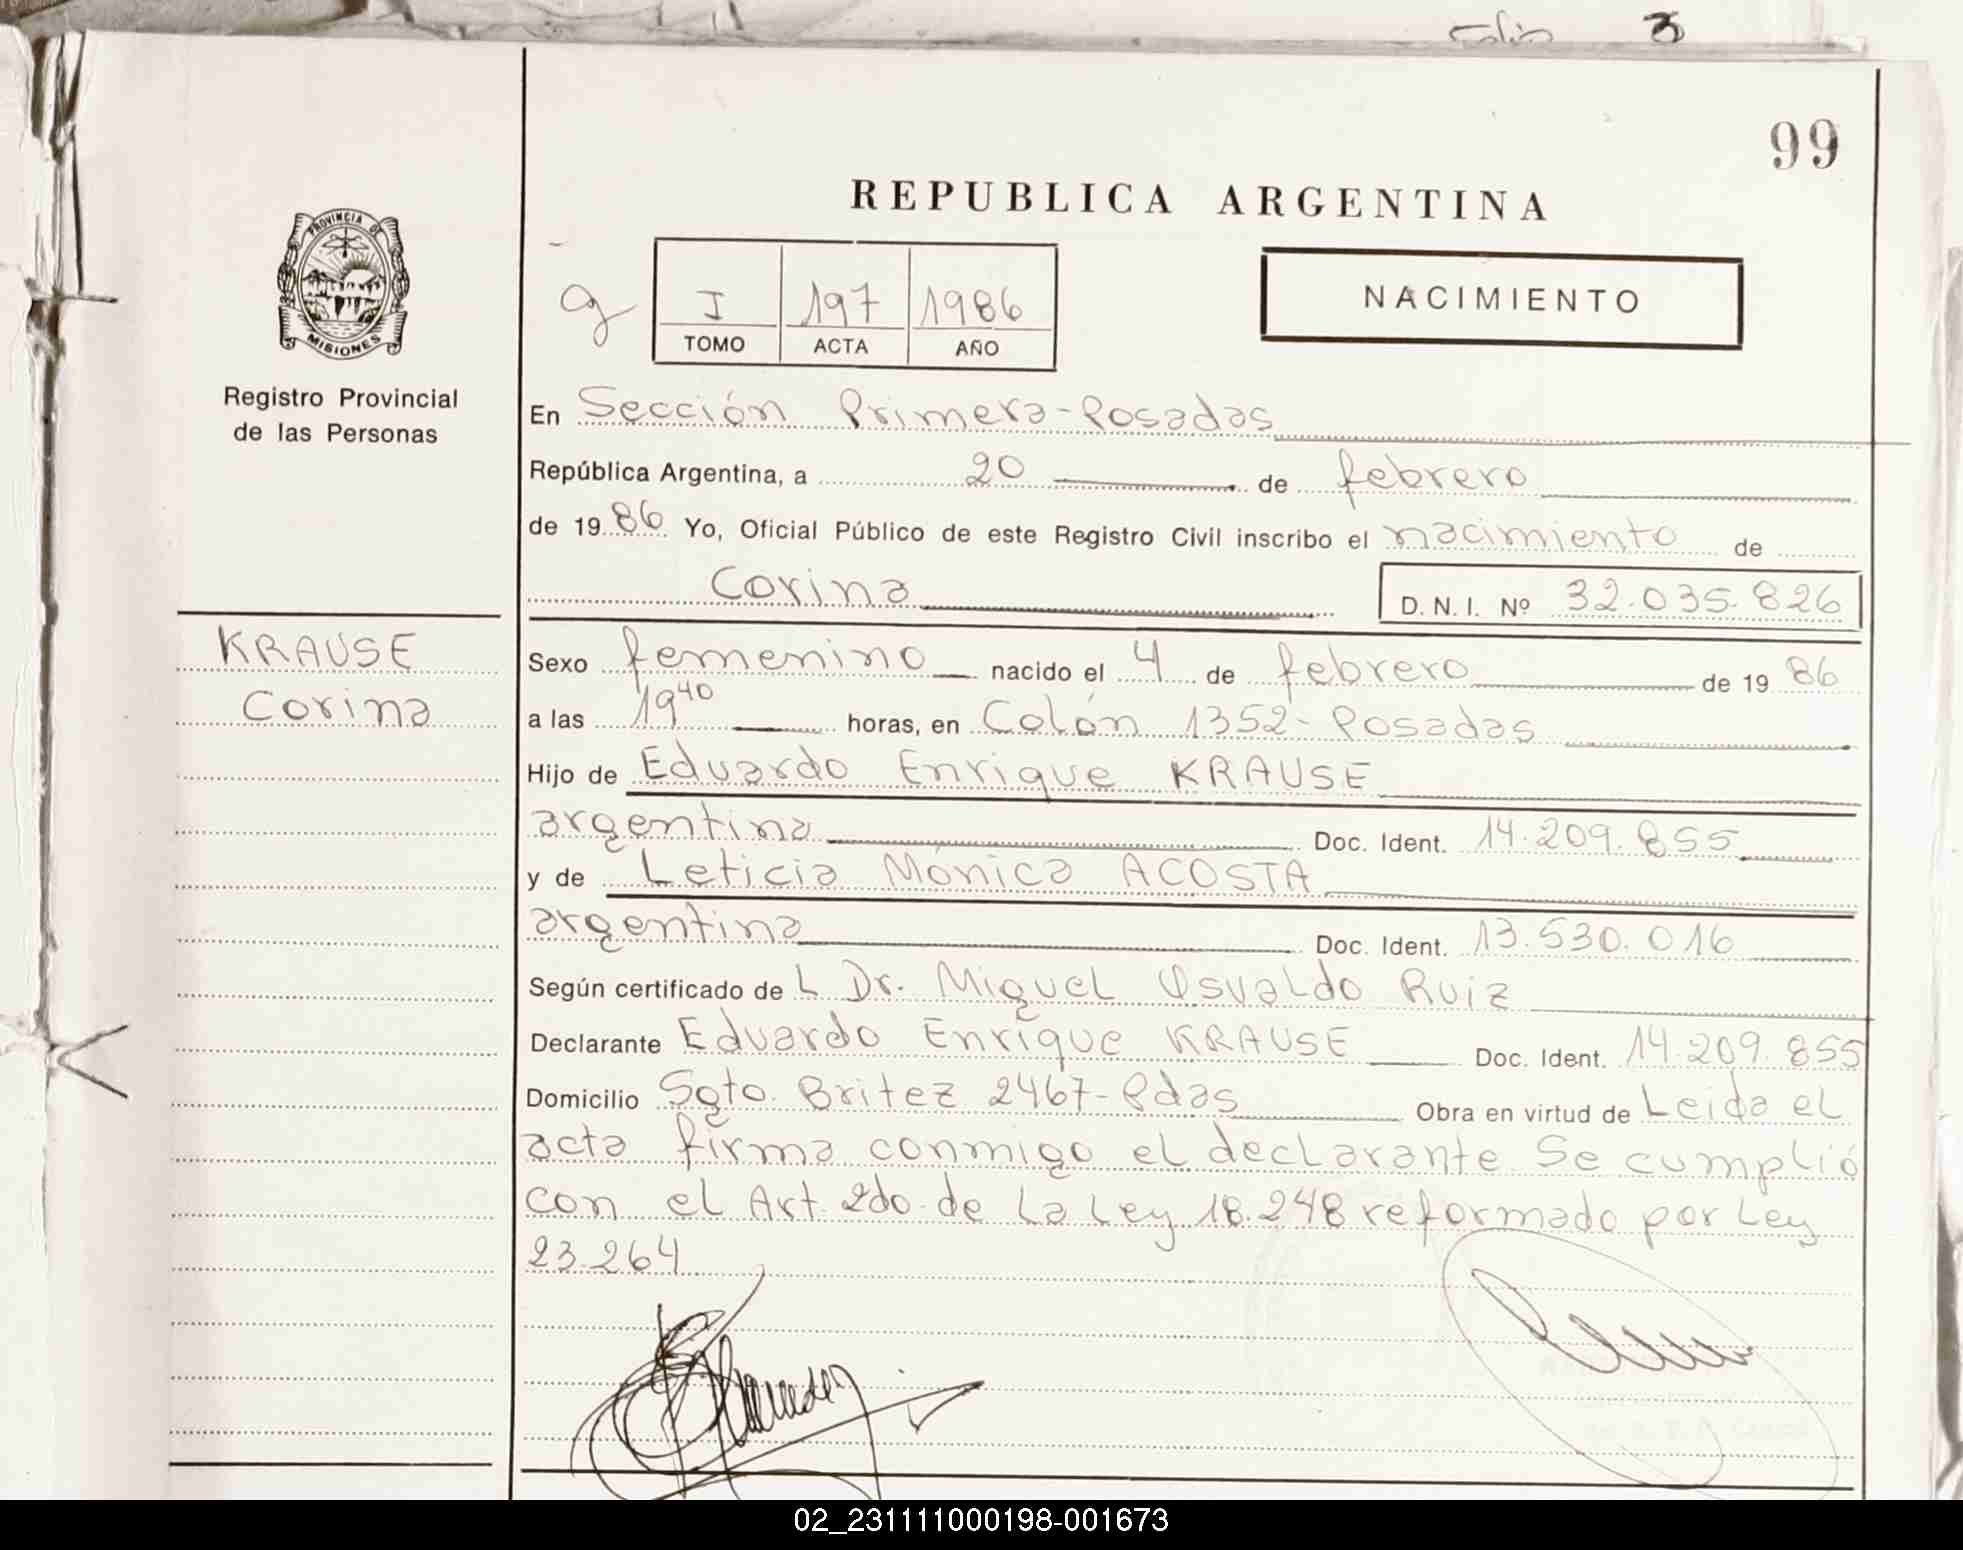 Folio 3
99
REPUBLICA ARGENTINA
PROVINCIA DE
MISIONES
Registro Provincial
de las Personas
I 197 1986
TOMO ACTA AÑO
NACIMIENTO
En Sección Primera - Posadas
República Argentina, a 20 de febrero
de 1986 Yo, Oficial Público de este Registro Civil inscribo el nacimiento de
Corina D. N. I. Nº 32.035.826
KRAUSE
Corina
Sexo femenino nacido el 4 de febrero de 1986
a las 19 40 horas, en Colón 1352 - Posadas
Hijo de Eduardo Enrique KRAUSE
argentina Doc. Ident. 14.209.855
y de Leticia Mónica ACOSTA
argentina Doc. Ident. 13.530.016
Según certificado de L Dr. Miguel Osvaldo Ruiz
Declarante Eduardo Enrique KRAUSE Doc. Ident. 14.209.855
Domicilio Sgto. Britez 2467 - Pdas Obra en virtud de Leida el
acta firma conmigo el declarante. Se cumplió
con el Art. 2do. de la Ley 18.248 reformado por Ley
23.264
02_231111000198-001673